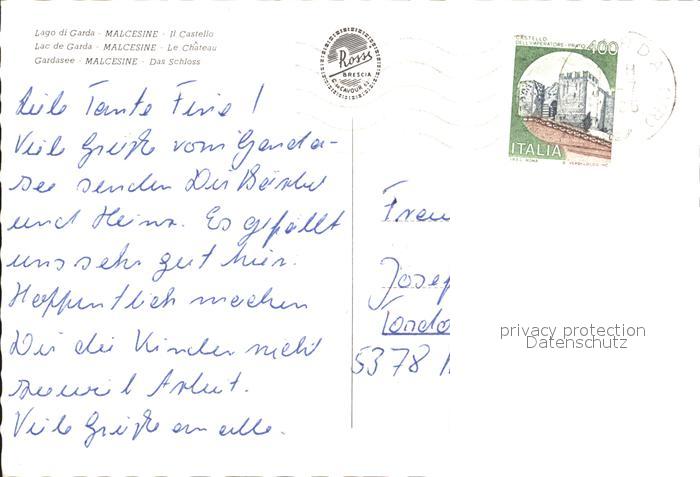 Lago di Garda - MALCESINE - Il Castello
Lac de Garda - MALCESINE - Le Château
Gardasee - MALCESINE - Das Schloss
Rossi
BRESCIA
C. CAVOUR 42
CASTELLO
DELL'IMPERATORE - PRATO 400
ITALIA
I.P.Z.S. ROMA
Liebe Tante Fine!
Viele Grüße vom Garda-
see senden Dir Bärbel
und Heinz. Es gefällt
uns sehr gut hier.
Hoffentlich machen
Dir die Kinder nicht
soviel Arbeit.
Viele Grüße an alle.
Frau
Josep
5378
privacy protection
Datenschutz